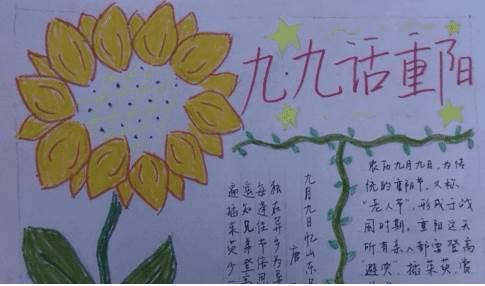 九九话重阳
九月九日忆山东
唐
独在异乡为异
每逢佳节倍思
遥知兄弟登高
遍插茱萸少一
农历九月九日，为传
统的重阳节，又称
“老人节”，形成于战
国时期。重阳这天
所有亲人都要登高
“避灾”，插茱萸、赏